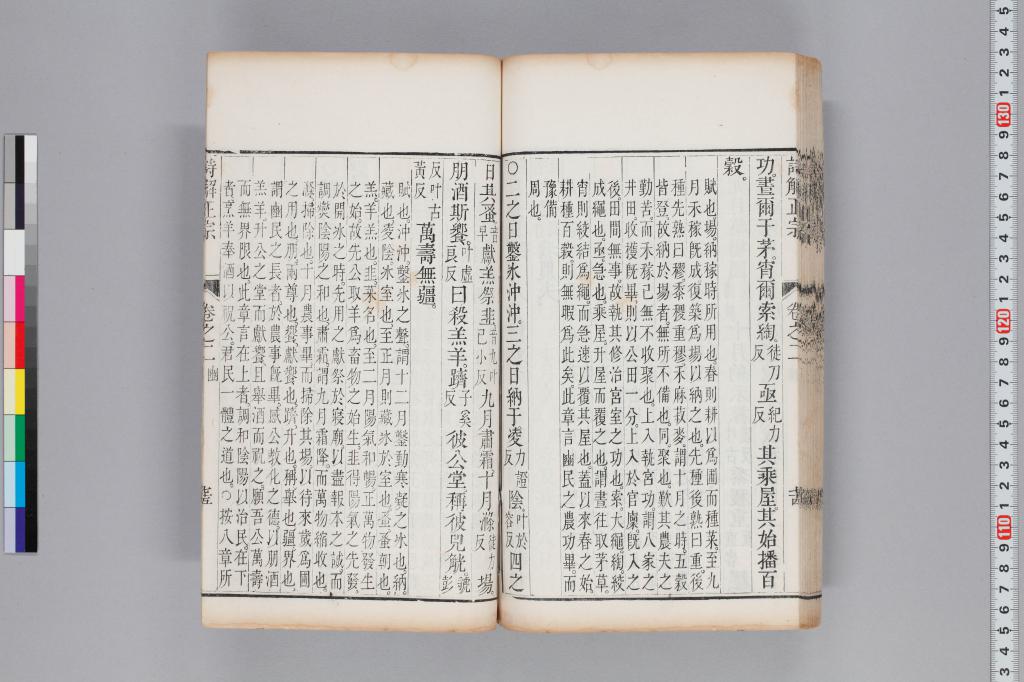 詩解正宗 卷之二
功。晝爾于茅。宵爾索綯。徒刀反亟紀力反其乘屋。其始播百
穀。
賦也。場納稼時所用也。春則耕以爲圃而種菜。至九
月禾稼既成。復築爲場以納之也。先種後熟曰重。後
種先熟曰穋。黍稷重穋禾麻菽麥。謂十月之時。五穀
皆登。故納於場者。無所不備也。同。聚也。歎其農夫之
勤苦。而禾稼已無不收聚也。上入執宮功。謂八家之
井田。收獲既畢。則以公田一分。上入於官廩。既入之
後。田間無事。故執其修治宮室之功也。索。大繩。綯。絞
成繩也。亟。急也。乘屋。升屋而覆之也。謂晝往取茅草。
宵則絞結爲繩。而急速以覆其屋也。蓋以來春之始。
耕種百穀。則無暇爲此矣。此章言豳民之農功畢。而
豫備
周也。
○二之日鑿氷沖沖。三之日納于凌力證反陰。叶於容反四之
日其蚤音早獻羔祭韭。音九叶己小反九月肅霜。十月滌徒力反場。
朋酒斯饗。叶虛良反曰殺羔羊。躋子奚反彼公堂。稱彼兕觥。虢彭
反叶古黃反萬壽無疆。
賦也。沖沖。鑿氷之聲。謂十二月鑿動寒凝之氷也。納。
藏也。凌陰。氷室也。至正月則藏氷於室也。蚤。蚤朝也。
羔。羊羔也。韭。菜名也。至二月陽氣和暢。正萬物發生
之始。故先公取羊爲畜物之始生。韭得陽氣之先發。
於開氷之時。先用之獻祭於寢廟。以盡報本之誠。而
調燮陰陽之和也。肅霜。謂九月霜降。而萬物縮收也。
滌。掃除也。十月農事畢。而掃除其場。以待來歲爲圃
之用也。朋。兩尊也。饗。獻饗也。躋。升也。稱。舉也。疆。界也。
謂豳民之長者。於農事既畢。感公教化之德。以朋酒
羔羊。升公之堂而獻饗。且舉酒而祝之。願吾公萬壽
而無界限也。此章言在上者調和陰陽以治民。在下
者烹羊奉酒以祝公。君民一體之道也。○按八章所
詩解正宗 卷之二 豳